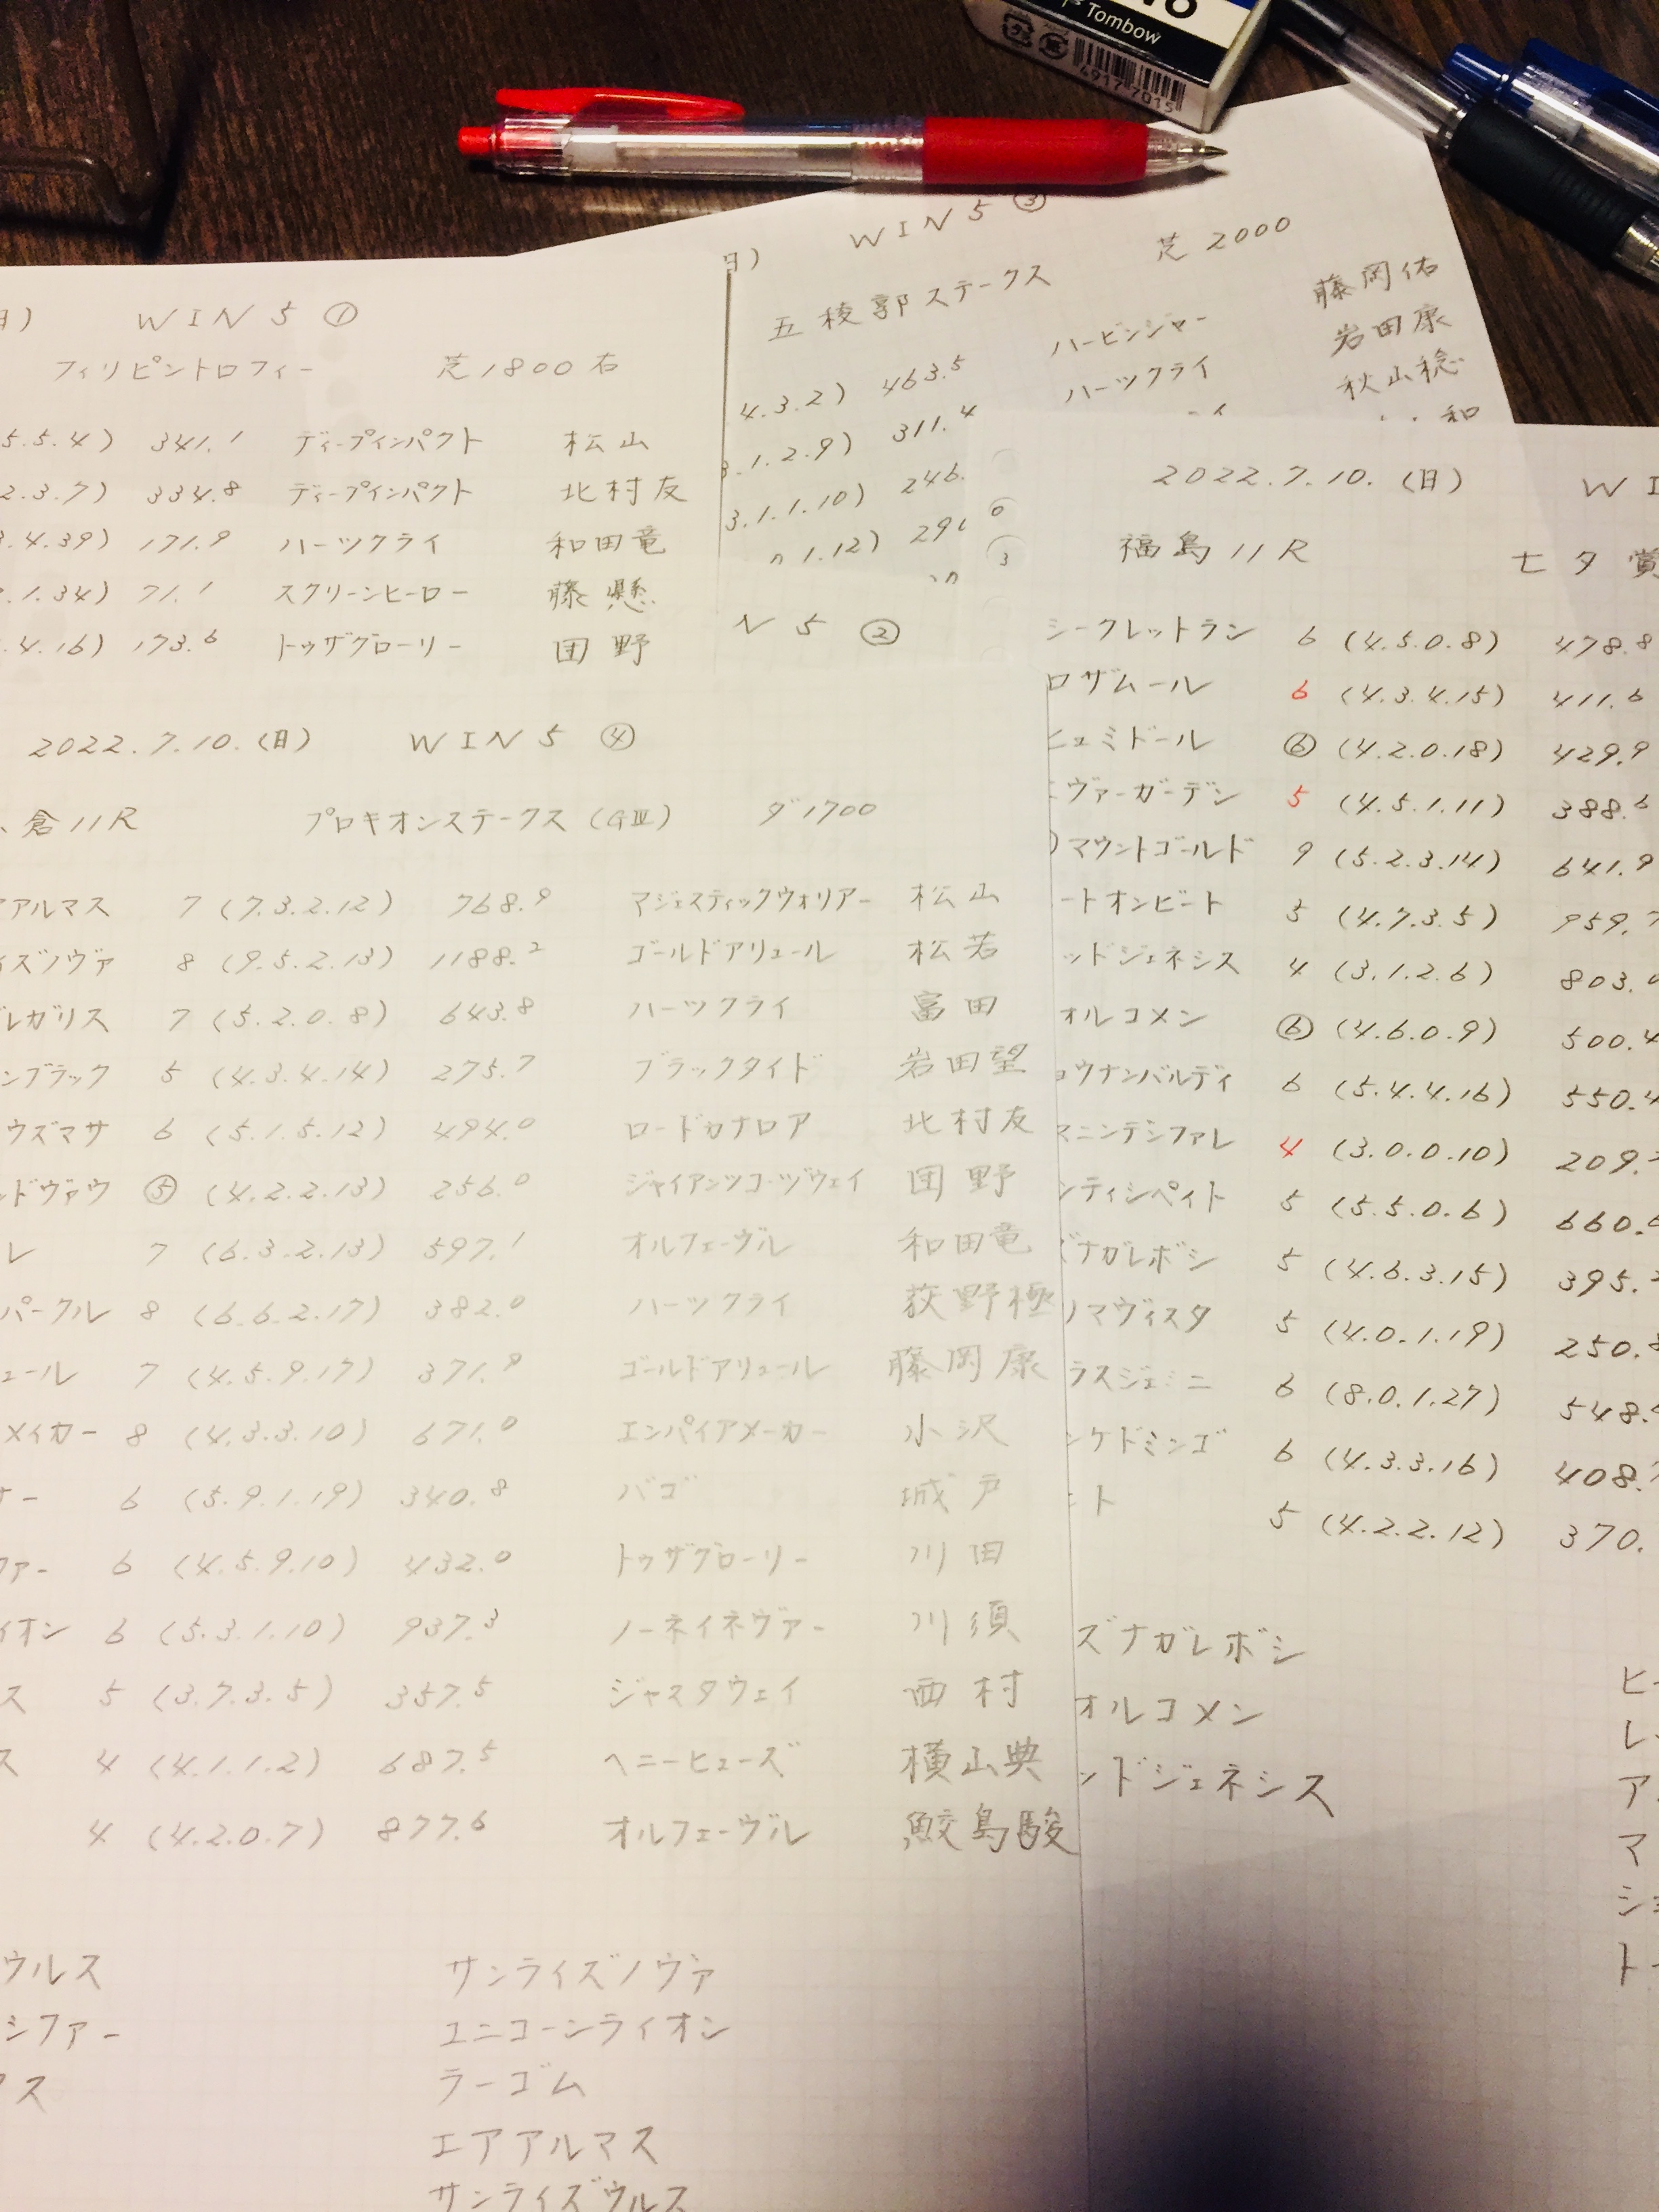 Tombow
4917 7015
日) WIN5 ③
五稜郭ステークス 芝2000
4.3.2) 463.5 ハービンジャー 藤岡佑
3.1.2.9) 311.4 ハーツクライ 岩田康
3.1.1.10) 246. 秋山稔
1.12) 291 和
N5 ②
日) WIN5 ①
フィリピントロフィー 芝1800右
5.5.4) 341.1 ディープインパクト 松山
2.3.7) 334.8 ディープインパクト 北村友
3.4.39) 171.9 ハーツクライ 和田竜
.1.34) 71.1 スクリーンヒーロー 藤懸
.4.16) 173.6 トゥザグローリー 団野
2022.7.10.(日) WIN5 ④
倉11R プロキオンステークス(GⅢ) ダ1700
アルマス 7 (7.3.2.12) 768.9 マジェスティックウォリアー 松山
イズノヴァ 8 (9.5.2.13) 1188.2 ゴールドアリュール 松若
レガリス 7 (5.2.0.8) 643.8 ハーツクライ 富田
ンブラック 5 (4.3.4.14) 275.7 ブラックタイド 岩田望
ウズマサ 6 (5.1.5.12) 494.0 ロードカナロア 北村友
ッドヴァウ ⑤ (4.2.2.13) 256.0 ジャイアンツコーズウェイ 団野
レ 7 (6.3.2.13) 597.1 オルフェーヴル 和田竜
パークル 8 (6.6.2.17) 382.0 ハーツクライ 荻野極
ュール 7 (4.5.9.17) 371.9 ゴールドアリュール 藤岡康
メイカー 8 (4.3.3.10) 671.0 エンパイアメーカー 小沢
ナー 6 (5.9.1.19) 340.8 バゴ 城戸
ファー 6 (4.5.9.10) 432.0 トゥザグローリー 川田
イオン 6 (5.3.1.10) 937.3 ノーネイネヴァー 川須
ス 5 (3.7.3.5) 357.5 ジャスタウェイ 西村
ス 4 (4.1.1.2) 687.5 ヘニーヒューズ 横山典
4 (4.2.0.7) 877.6 オルフェーヴル 鮫島駿
ウルス サンライズノヴァ
シファー ユニコーンライオン
マス ラーゴム
エアアルマス
サンライズウルス
2022.7.10.(日) WI
福島11R 七夕賞
シークレットラン 6 (4.5.0.8) 478.8
ロザムール 6 (4.3.4.15) 411.6
ヒュミドール ⑥ (4.2.0.18) 429.9
エヴァーガーデン 5 (4.5.1.11) 388.6
マウントゴールド 9 (5.2.3.14) 641.9
ートオンビート 5 (4.7.3.5) 959.7
ッドジェネシス 4 (3.1.2.6) 803.0
オルコメン ⑥ (4.6.0.9) 500.4
ョウナンバルディ 6 (5.4.4.16) 550.4
マニンテンファレ 4 (3.0.0.10) 209.
ンティシペイト 5 (5.5.0.6) 660.
ズナガレボシ 5 (4.6.3.15) 395.
リマヴィスタ 5 (4.0.1.19) 250.8
ラスジェミニ 6 (8.0.1.27) 548.
ンケドミンゴ 6 (4.3.3.16) 408.
ート 5 (4.2.2.12) 370.
ズナガレボシ
オルコメン ヒ
ッドジェネシス レ
ア
マ
ショ
ト